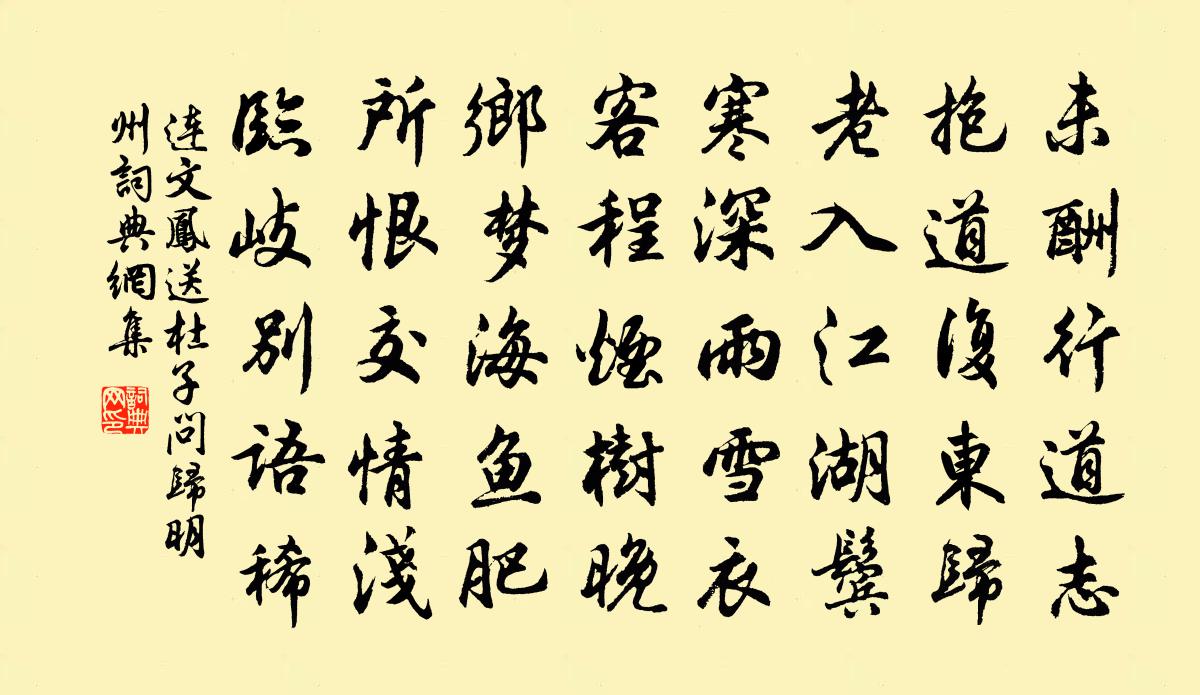 未酬行道志
抱道復東歸
老入江湖鬓
寒深雨雪衣
客程煙樹晚
鄉梦海鱼肥
所恨交情淺
臨岐別語稀
连文鳳送杜子问歸明
州詞典網集
詞典网印